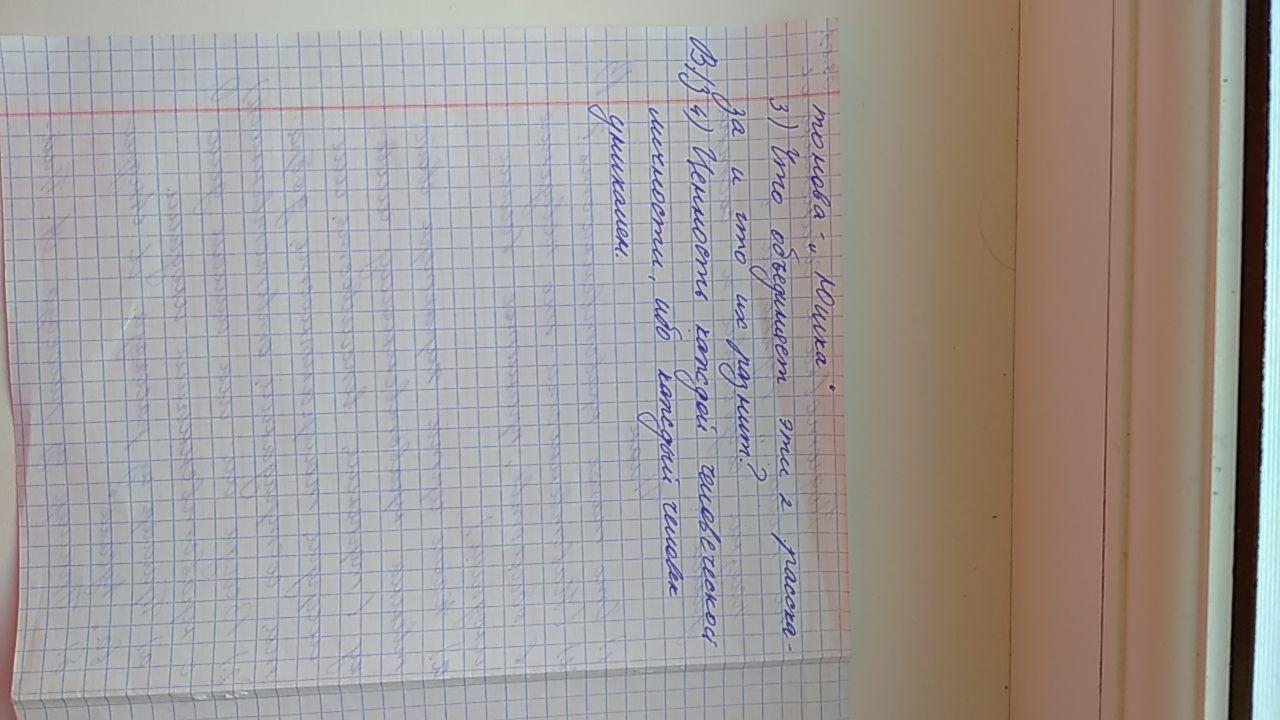 тонова" и "Юшка".
3) Что объединяет эти 2 расска-
за и что их разнит?
В/з 4) Ценность каждой человеческой
личности, ибо каждый человек
уникален.